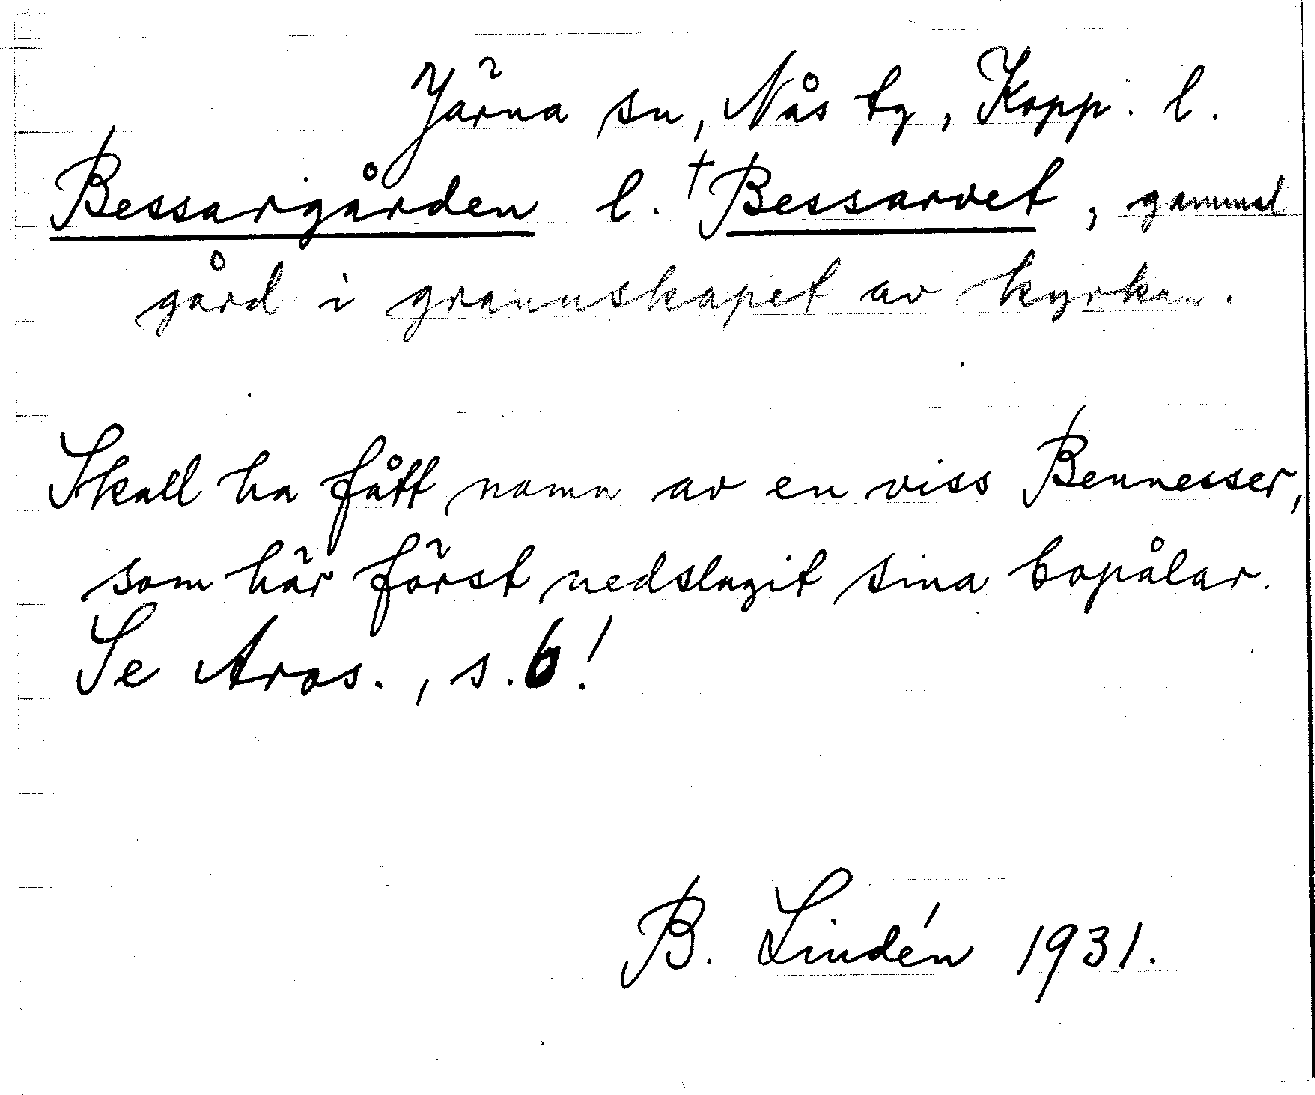 Järna sn, Nås tg, Kopp. l.
Bessargården l. †Bessarvet, gammal
gård i grannskapet av kyrkan.
Skall ha fått namn av en viss Bennesser,
som här först nedslagit sina bopålar.
Se Aros., s. 6!
B. Lindén 1931.